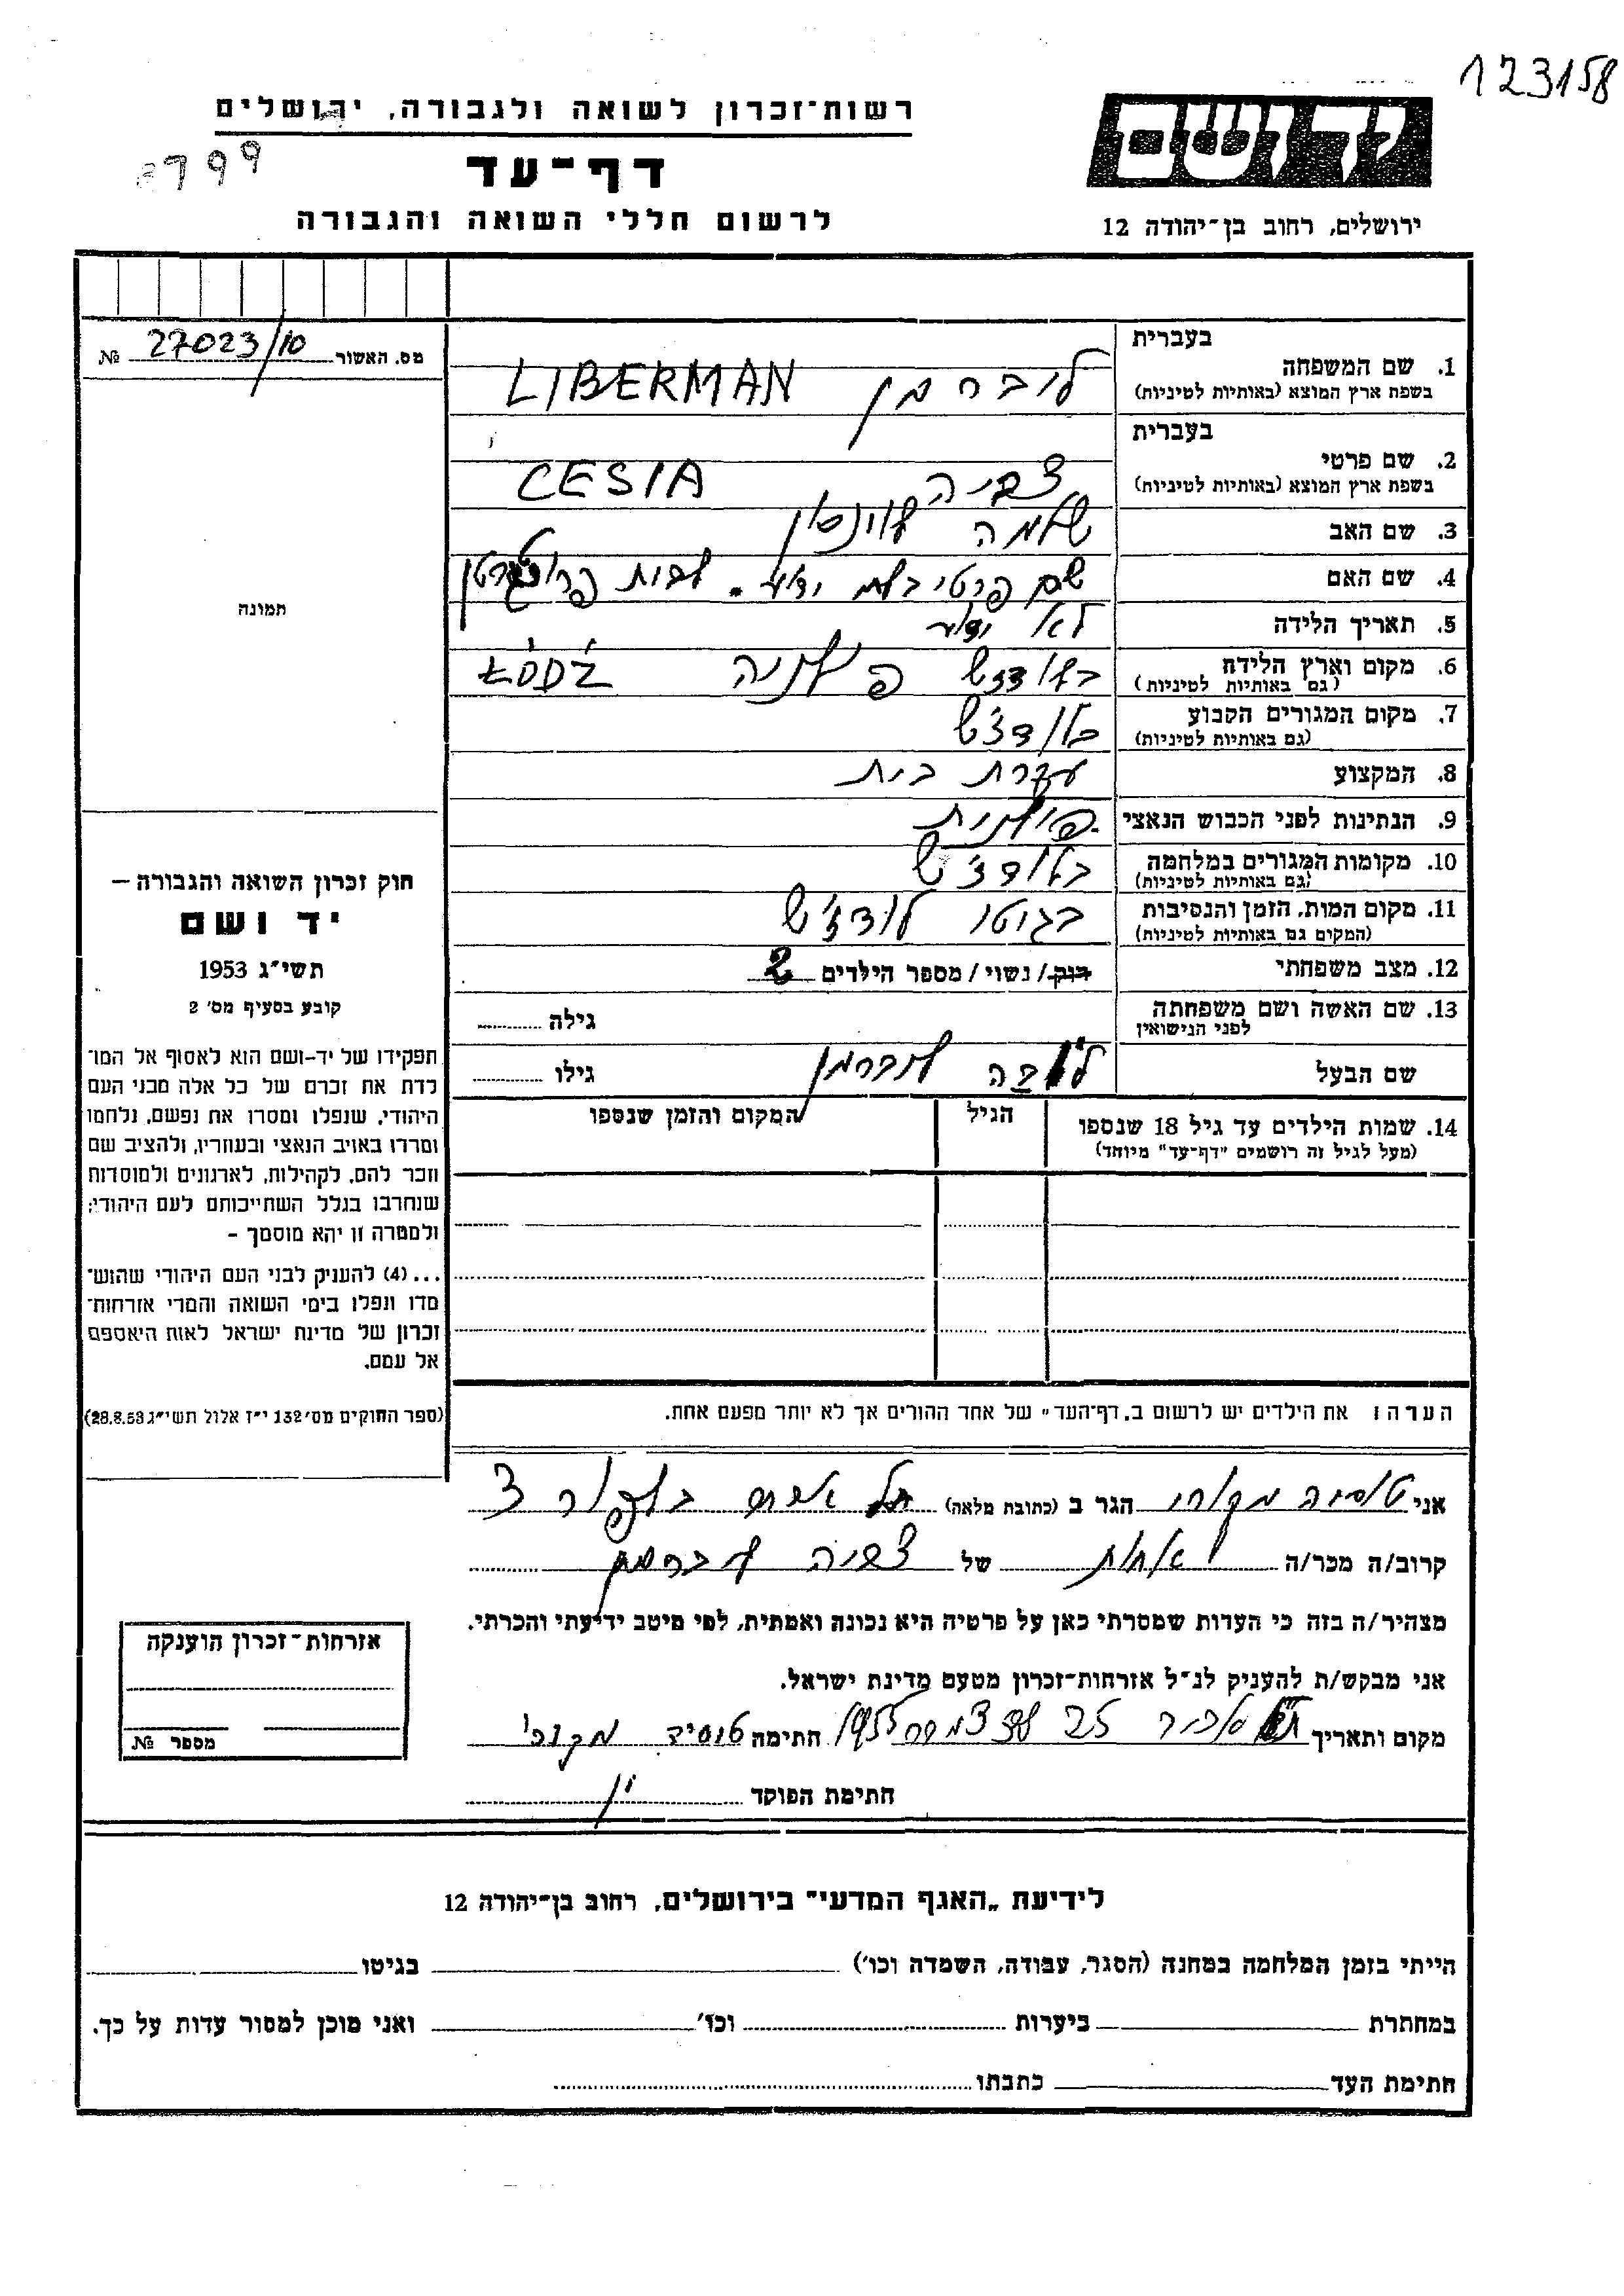 123158
רשות־זכרון לשואה ולגבורה, ירושלים
ידושם
דף־עד
8799
לרשום חללי השואה והגבורה
ירושלים, רחוב בן־יהודה 12
מס. האשור 27023/10 №
בעברית
1. שם המשפחה
בשפת ארץ המוצא (באותיות לטיניות)
ליברמן LIBERMAN
בעברית
2. שם פרטי
בשפת ארץ המוצא (באותיות לטיניות)
צביה CESIA
3. שם האב
שלמה לוינסון
4. שם האם
שם פרטי בלתי ידוע. לבית
5. תאריך הלידה
לא ידוע
6. מקום וארץ הלידה
(גם באותיות לטיניות)
בלודזש פולניה ŁÓDŹ
7. מקום המגורים הקבוע
(גם באותיות לטיניות)
בלודז'ש
8. המקצוע
עקרת בית
9. הנתינות לפני הכבוש הנאצי
פולנית
10. מקומות המגורים במלחמה
(גם באותיות לטיניות)
בלודז'ש
11. מקום המות, הזמן והנסיבות
(המקום גם באותיות לטיניות)
בגיטו לודז'ש
12. מצב משפחתי
רוק / נשוי / מספר הילדים 2
13. שם האשה ושם משפחתה
לפני הנישואין
גילה
שם הבעל
ליברמן
גילו
14. שמות הילדים עד גיל 18 שנספו
(מעל לגיל זה רושמים "דף־עד" מיוחד)
הגיל
המקום והזמן שנספו
הערה: את הילדים יש לרשום ב„דף־העד" של אחד ההורים אך לא יותר מפעם אחת.
תמונה
חוק זכרון השואה והגבורה —
יד ושם
תשי״ג 1953
קובע בסעיף מס׳ 2
תפקידו של יד־ושם הוא לאסוף אל המו־
לדת את זכרם של כל אלה מבני העם
היהודי, שנפלו ומסרו את נפשם, נלחמו
ומרדו באויב הנאצי ובעוזריו, ולהציב שם
וזכר להם, לקהילות, לארגונים ולמוסדות
שנחרבו בגלל השתייכותם לעם היהודי;
ולמטרה זו יהא מוסמך –
...(4) להעניק לבני העם היהודי שהוש־
מדו ונפלו בימי השואה והמרי אזרחות־
זכרון של מדינת ישראל לאות היאספם
אל עמם.
(ספר החוקים מס׳ 132 י״ז אלול תשי״ג 28.8.53)
אני טוסיה הגר ב (כתובת מלאה) תל אביב 3
קרוב/ה מכר/ה אחות של צביה ליברמן
מצהיר/ה בזה כי העדות שמסרתי כאן על פרטיה היא נכונה ואמתית, לפי מיטב ידיעתי והכרתי.
אני מבקש/ת להעניק לנ״ל אזרחות־זכרון מטעם מדינת ישראל.
מקום ותאריך תל אביב 25 1955 חתימה טוסיה
חתימת הפוקד
אזרחות־זכרון הוענקה
מספר №
לידיעת „האגף המדעי" בירושלים, רחוב בן־יהודה 12
הייתי בזמן המלחמה במחנה (הסגר, עבודה, השמדה וכו׳) בגיטו
במחתרת ביערות וכו׳ ואני מוכן למסור עדות על כך.
חתימת העד כתבתו